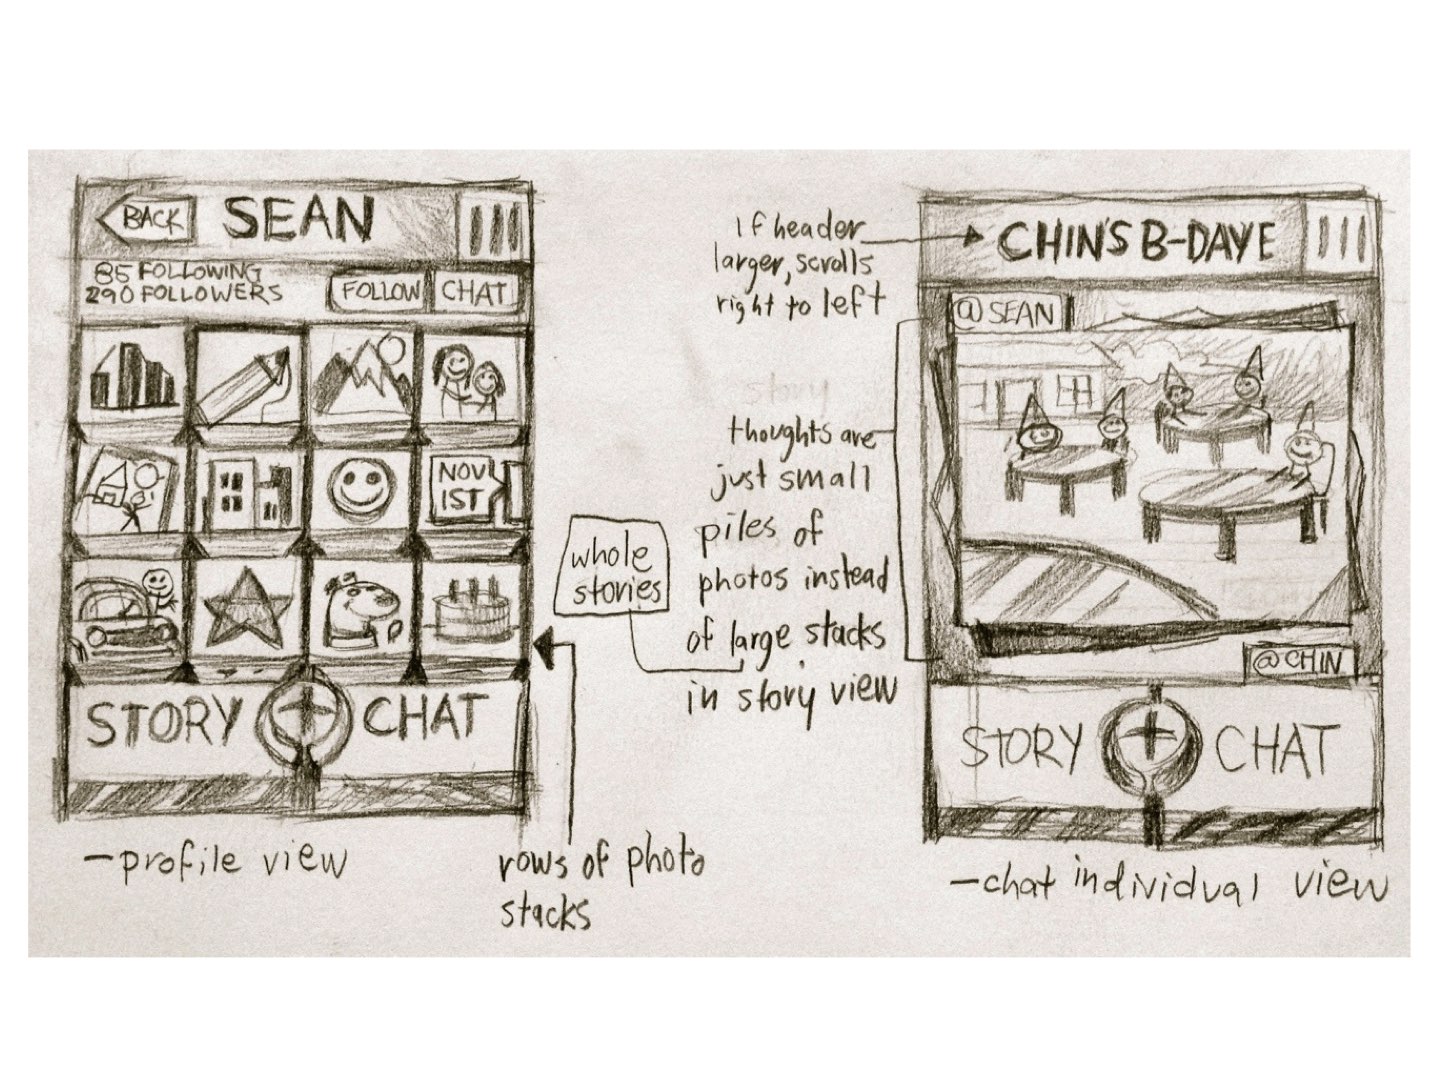 BACK
SEAN
85 FOLLOWING
290 FOLLOWERS
FOLLOW
CHAT
NOV
1ST
STORY
CHAT
-profile view
rows of photo
stacks
whole
stories
If header
larger, scrolls
right to left
story
thoughts are
just small
piles of
photos instead
of large stacks
in story view
CHIN'S B-DAYE
@SEAN
@CHIN
STORY
CHAT
-chat individual view